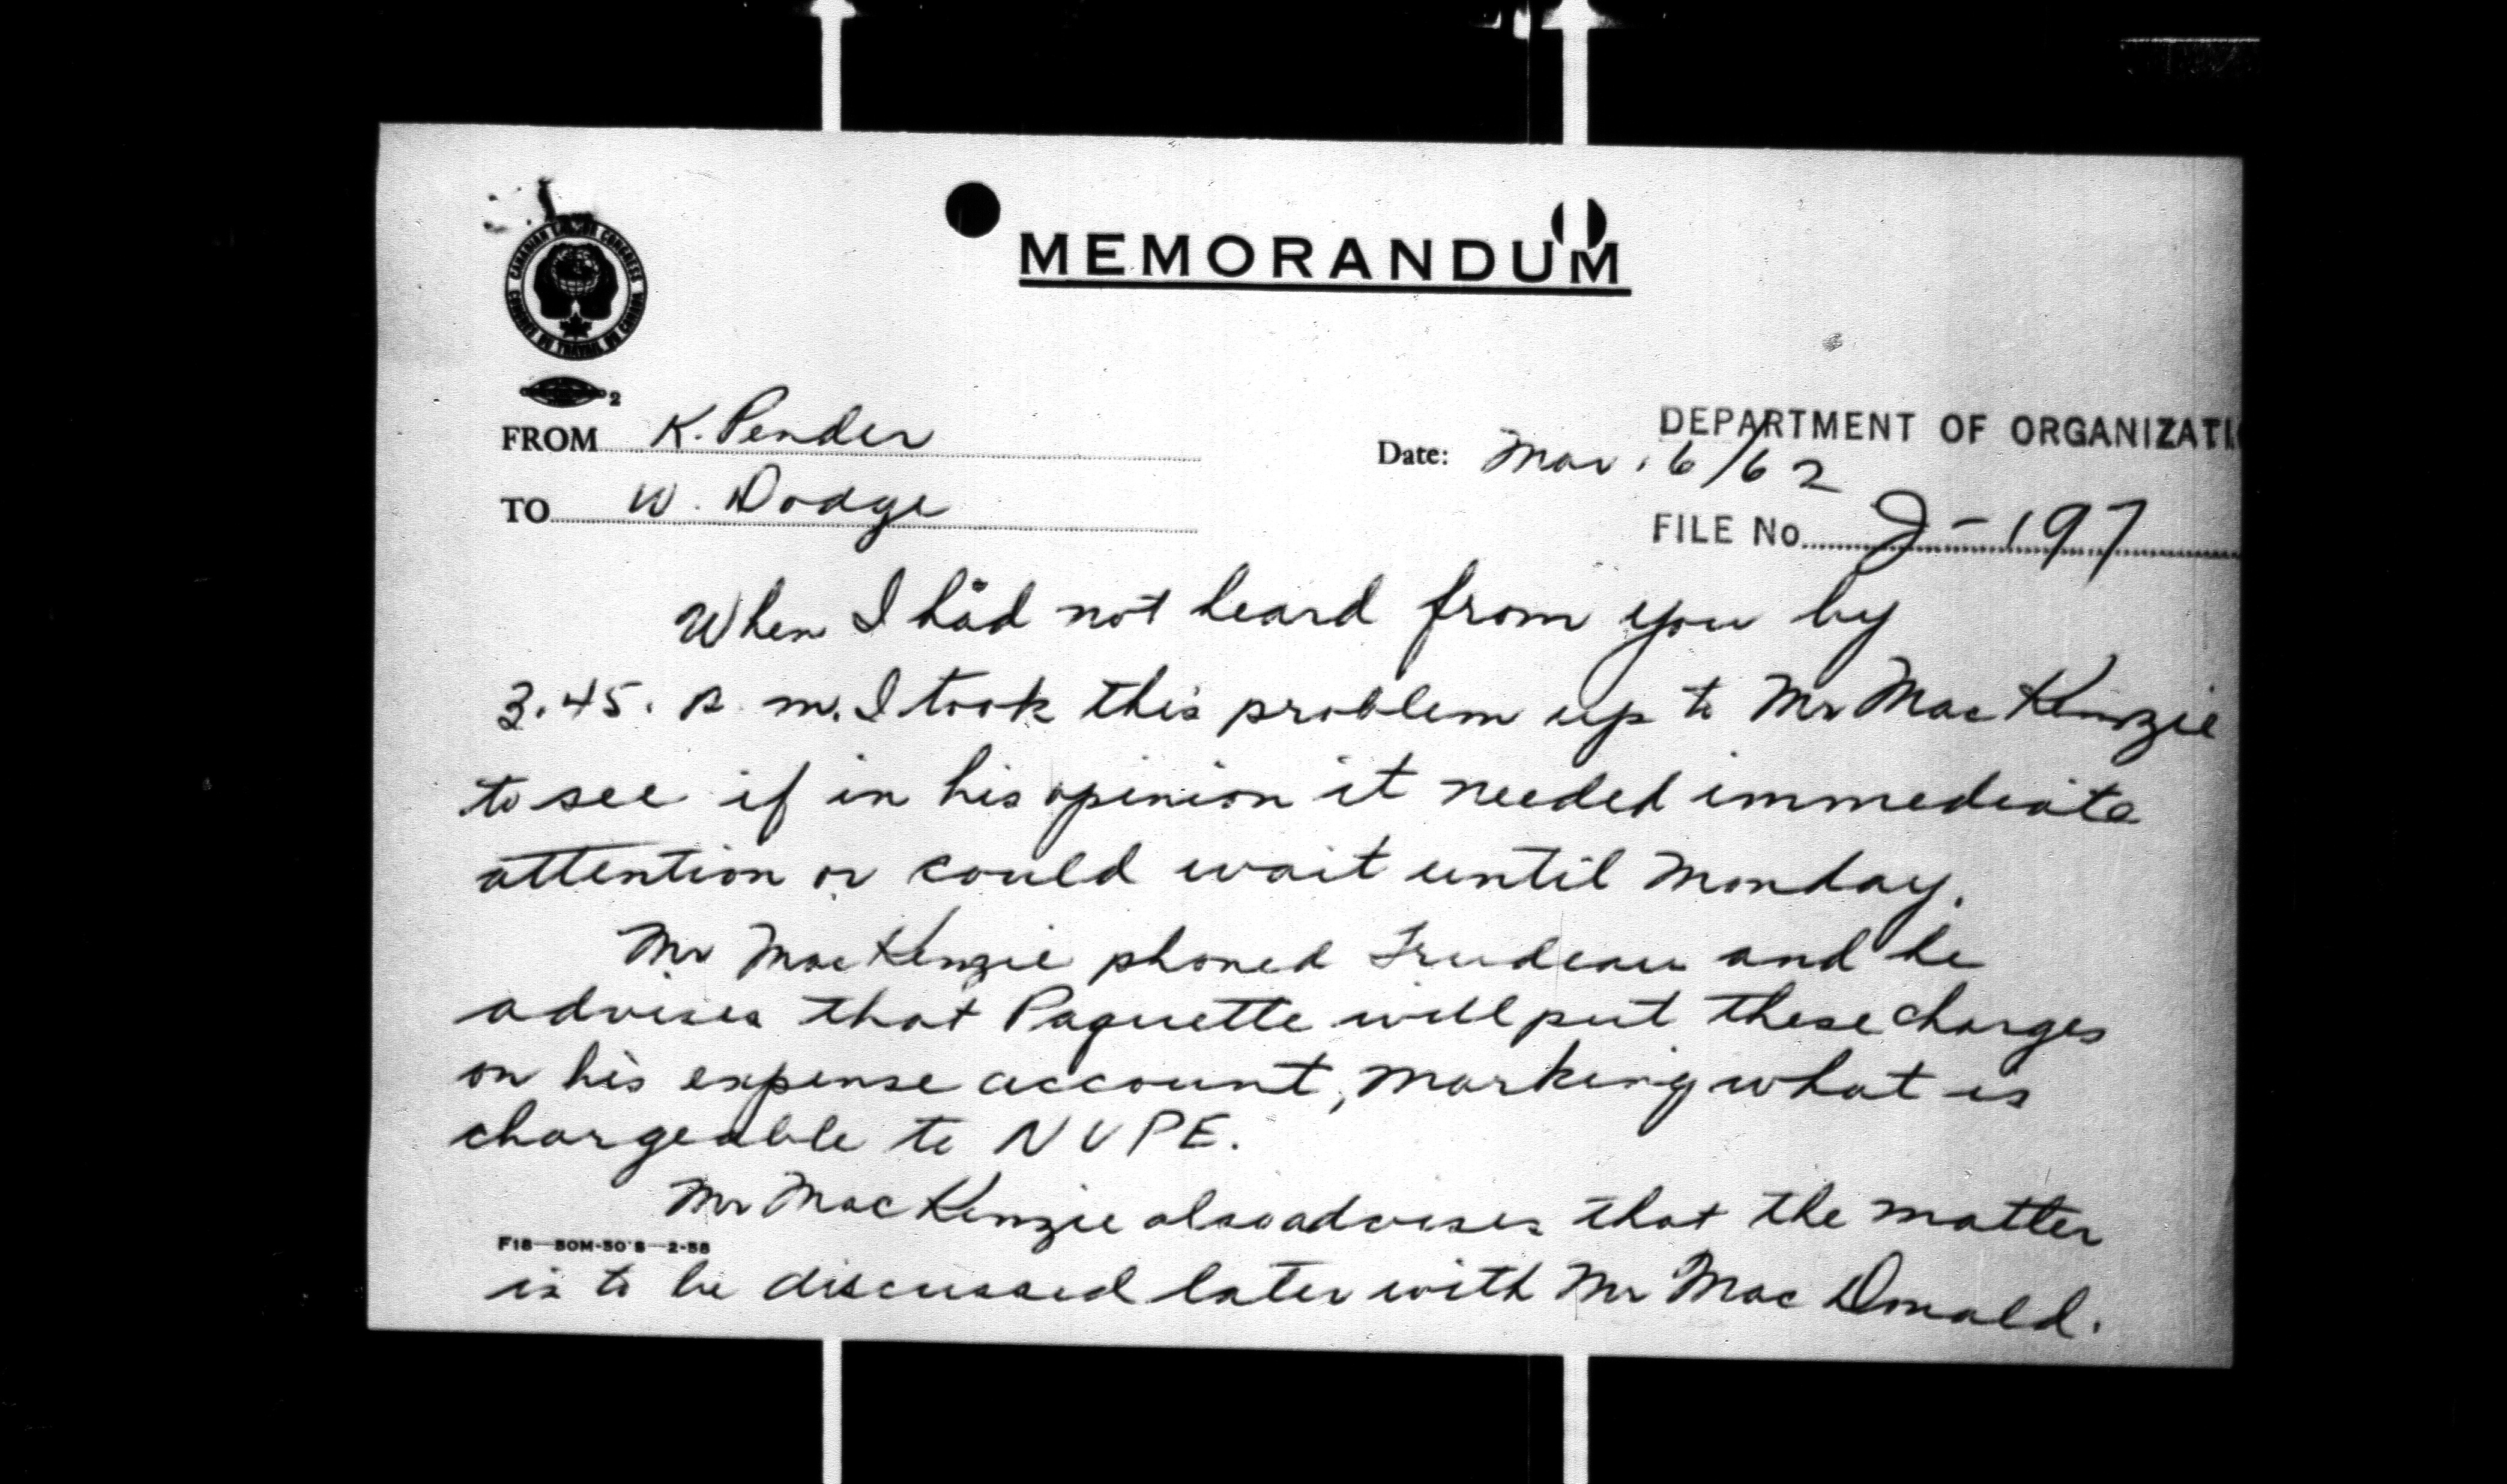 CANADIAN LABOUR CONGRESS
CONGRÈS DU TRAVAIL DU CANADA
MEMORANDUM
2
DEPARTMENT OF ORGANIZATI
FROM K. Pender
Date: Mar. 6/62
TO W. Dodge
FILE No. J-197
When I had not heard from you by
3.45. p.m. I took this problem up to Mr MacKenzie
to see if in his opinion it needed immediate
attention or could wait until Monday.
Mr MacKenzie phoned Trudeau and he
advises that Paquette will put these charges
on his expense account, marking what is
chargeable to NUPE.
Mr MacKenzie also advises that the matter
F18-50M-50'S-2-58
is to be discussed later with Mr MacDonald.